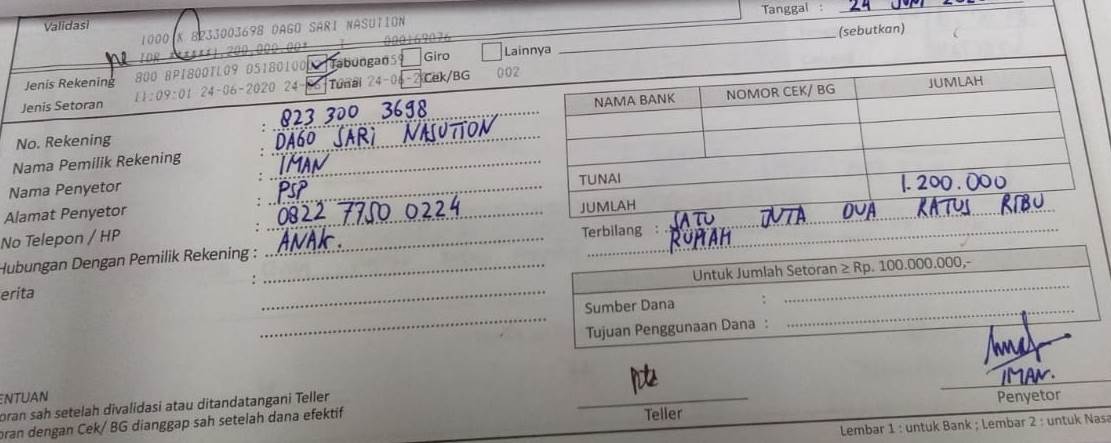 Validasi
Tanggal : 24 JUNI
1000 K 8233003698 DAGO SARI NASUTION
IDR ******1,200,000.00*
000169076
(sebutkan)
Jenis Rekening 800 8PI800TL09 05180100 Tabungan Giro Lainnya
Jenis Setoran 11:09:01 24-06-2020 Tunai Cek/BG 002
No. Rekening : 823 300 3698
Nama Pemilik Rekening : DAGO SARI NASUTION
Nama Penyetor : IMAN
Alamat Penyetor : PSP
No Telepon / HP : 0822 7750 0224
Hubungan Dengan Pemilik Rekening : ANAK.
erita :
NAMA BANK NOMOR CEK/ BG JUMLAH
TUNAI
JUMLAH 1.200.000
Terbilang : SATU JUTA DUA RATUS RIBU
RUPIAH
Untuk Jumlah Setoran ≥ Rp. 100.000.000,-
Sumber Dana :
Tujuan Penggunaan Dana :
IMAN.
Teller Penyetor
ENTUAN
oran sah setelah divalidasi atau ditandatangani Teller
oran dengan Cek/ BG dianggap sah setelah dana efektif
Lembar 1 : untuk Bank ; Lembar 2 : untuk Nasa